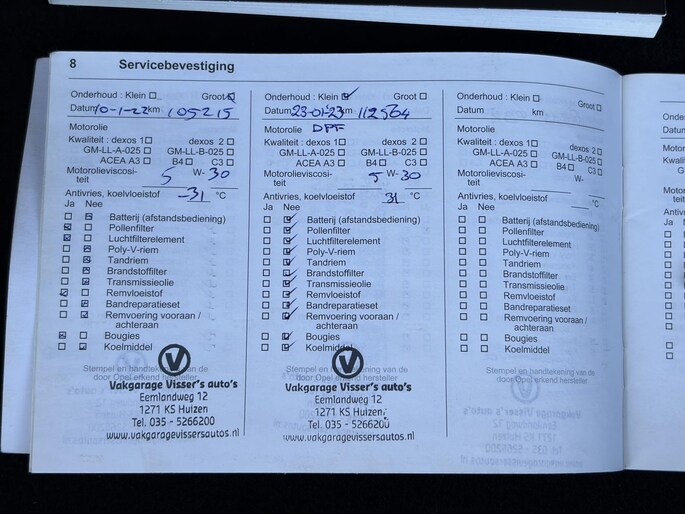 8 Servicebevestiging
Onderhoud : Klein Groot
Datum 10-1-22 km 105215
Motorolie
Kwaliteit : dexos 1 dexos 2
GM-LL-A-025 GM-LL-B-025
ACEA A3 B4 C3
Motorolieviscosi-
teit 5 W- 30
Antivries, koelvloeistof -31 °C
Ja Nee
Batterij (afstandsbediening)
Pollenfilter
Luchtfilterelement
Poly-V-riem
Tandriem
Brandstoffilter
Transmissieolie
Remvloeistof
Bandreparatieset
Remvoering vooraan /
achteraan
Bougies
Koelmiddel
Stempel en handtekening van de
door Opel erkend hersteller
V
Vakgarage Visser's auto's
Eemlandweg 12
1271 KS Huizen
Tel. 035 - 5266200
www.vakgaragevissersautos.nl
Onderhoud : Klein Groot
Datum 23-01-23 km 112564
Motorolie DPF
Kwaliteit : dexos 1 dexos 2
GM-LL-A-025 GM-LL-B-025
ACEA A3 B4 C3
Motorolieviscosi-
teit 5 W- 30
Antivries, koelvloeistof 31 °C
Ja Nee
Batterij (afstandsbediening)
Pollenfilter
Luchtfilterelement
Poly-V-riem
Tandriem
Brandstoffilter
Transmissieolie
Remvloeistof
Bandreparatieset
Remvoering vooraan /
achteraan
Bougies
Koelmiddel
Stempel en handtekening van de
door Opel erkend hersteller
V
Vakgarage Visser's auto's
Eemlandweg 12
1271 KS Huizen
Tel. 035 - 5266200
www.vakgaragevissersautos.nl
Onderhoud : Klein Groot
Datum km
Motorolie
Kwaliteit : dexos 1 dexos 2
GM-LL-A-025 GM-LL-B-025
ACEA A3 B4 C3
Motorolieviscosi-
teit W-
Antivries, koelvloeistof °C
Ja Nee
Batterij (afstandsbediening)
Pollenfilter
Luchtfilterelement
Poly-V-riem
Tandriem
Brandstoffilter
Transmissieolie
Remvloeistof
Bandreparatieset
Remvoering vooraan /
achteraan
Bougies
Koelmiddel
Stempel en handtekening van de
door Opel erkend hersteller